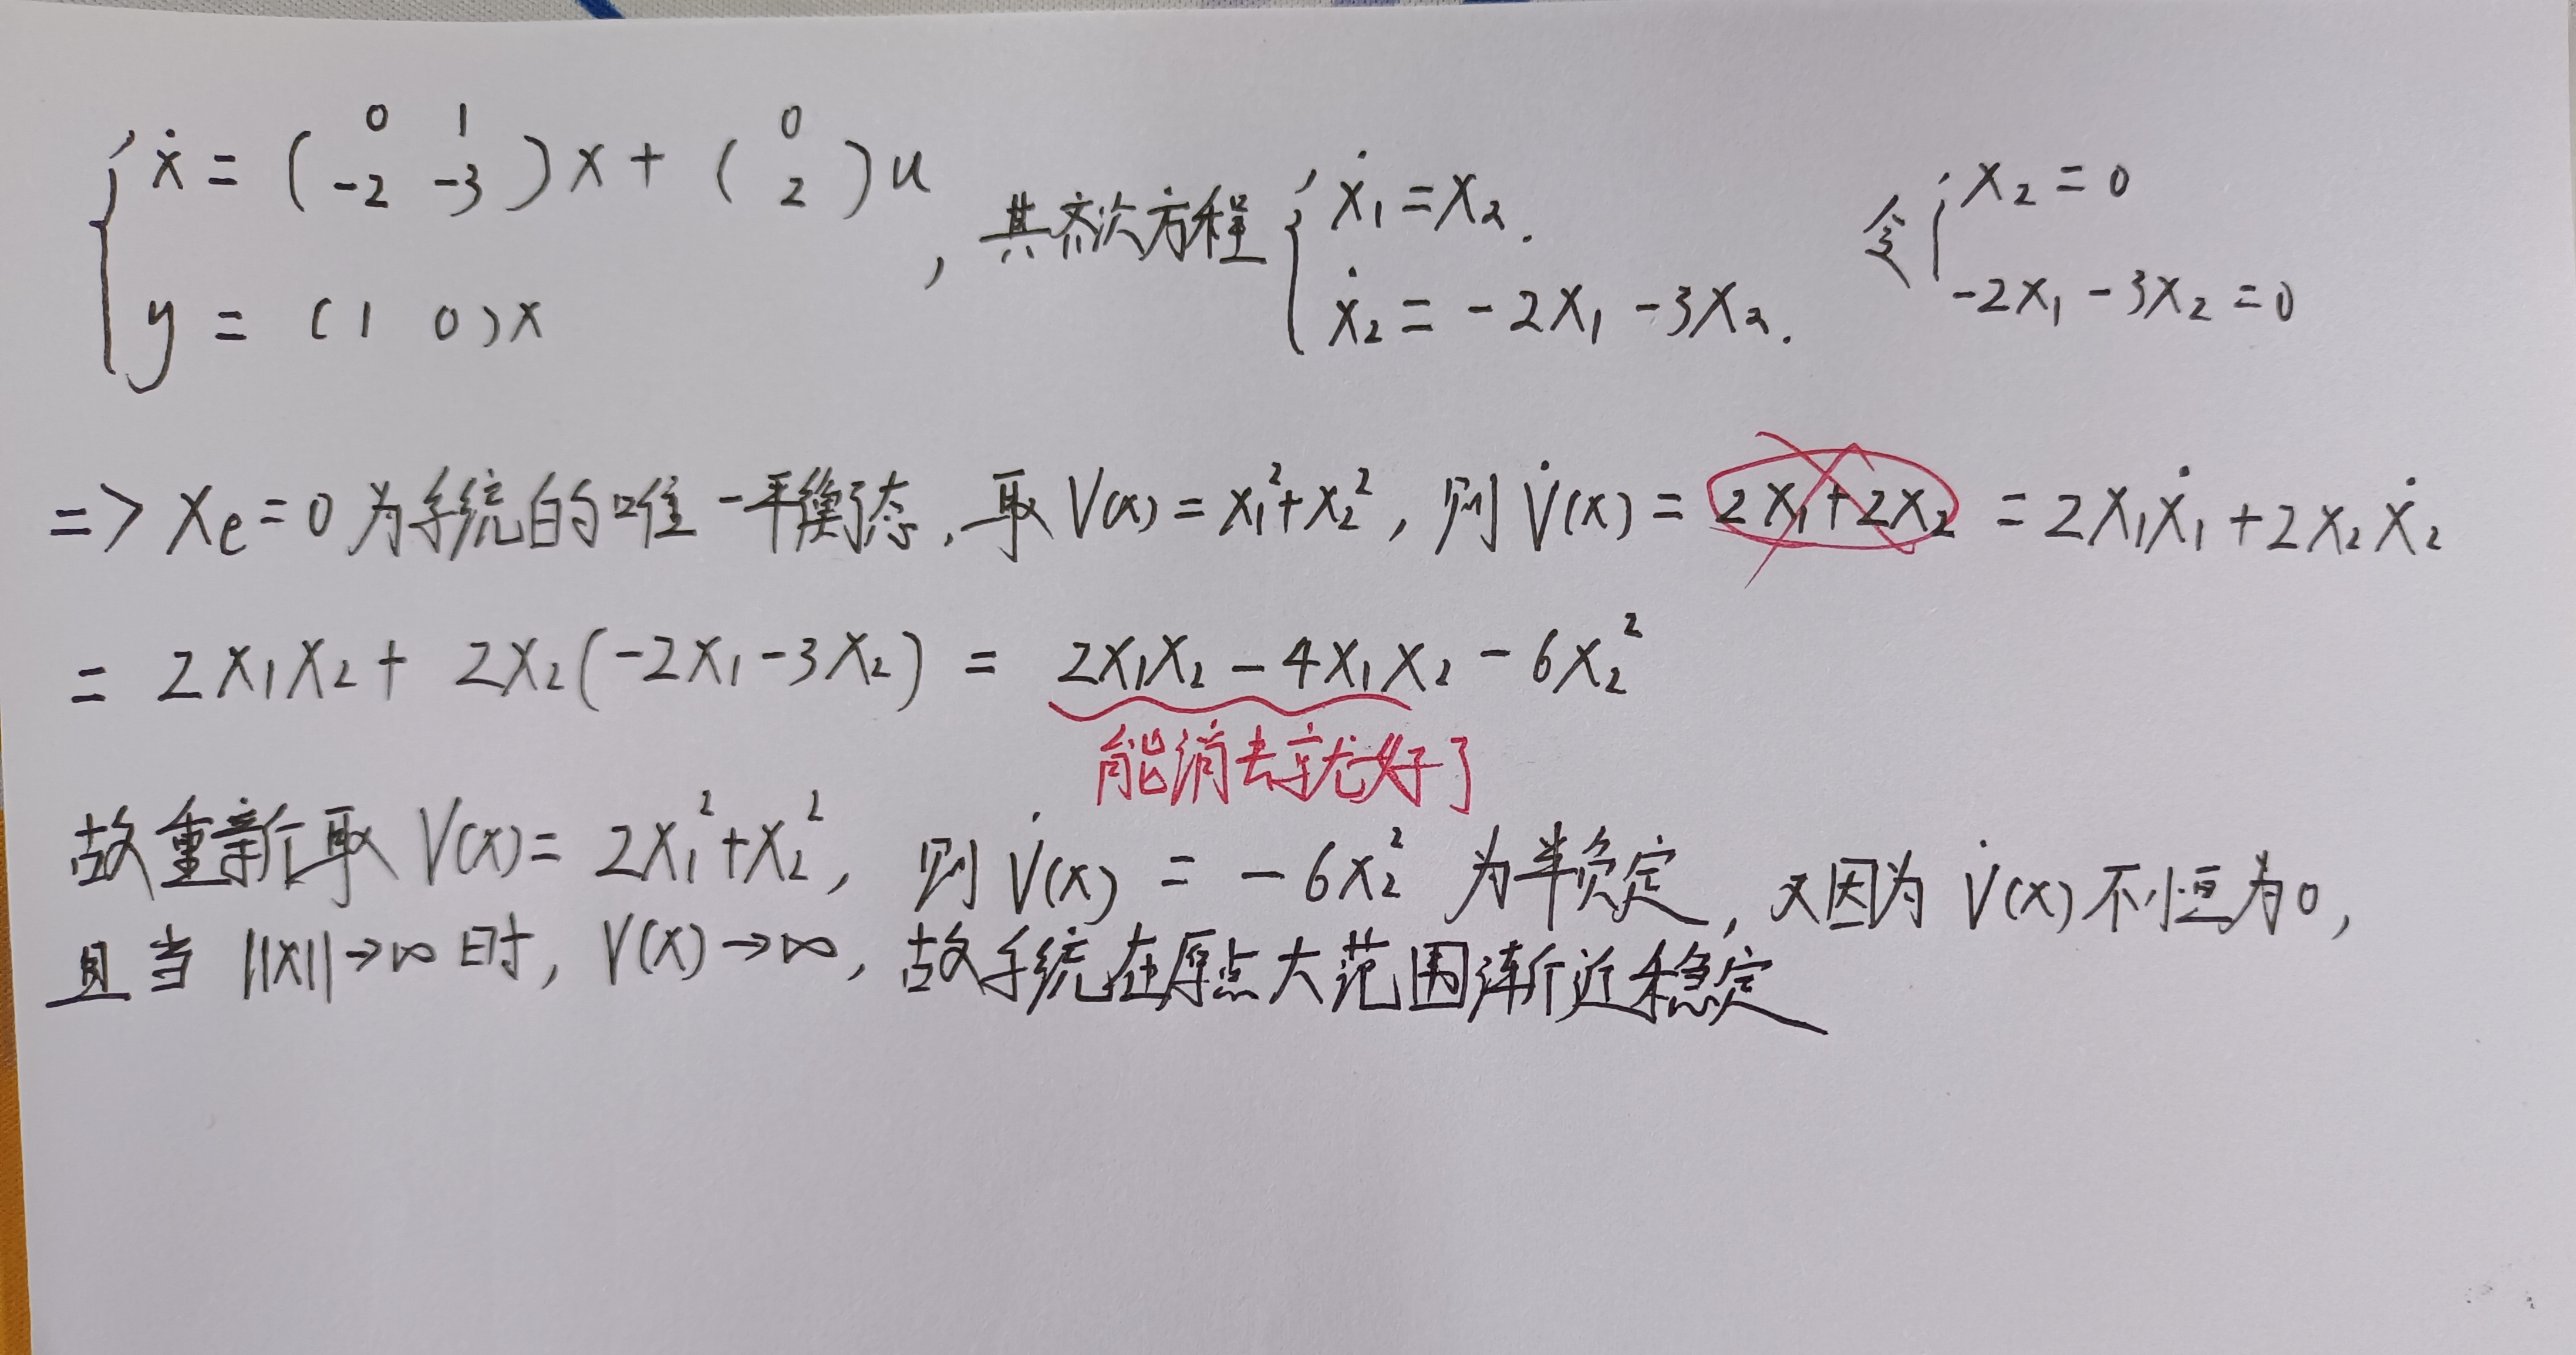 { ẋ = ( 0 1 -2 -3 ) x + ( 0 2 ) u
y = (1 0) x
, 其齐次方程 { ẋ₁ = x₂.
ẋ₂ = -2x₁ - 3x₂.
令 { x₂ = 0
-2x₁ - 3x₂ = 0
=> xₑ = 0 为系统的唯一平衡态, 取 V(x) = x₁² + x₂², 则 V̇(x) = 2x₁ + 2x₂ = 2x₁ẋ₁ + 2x₂ẋ₂
= 2x₁x₂ + 2x₂(-2x₁ - 3x₂) = 2x₁x₂ - 4x₁x₂ - 6x₂²
能消去就好了
故重新取 V(x) = 2x₁² + x₂², 则 V̇(x) = -6x₂² 为半负定, 又因为 V̇(x) 不恒为0,
且当 ||x||→∞ 时, V(x)→∞, 故系统在原点大范围渐近稳定